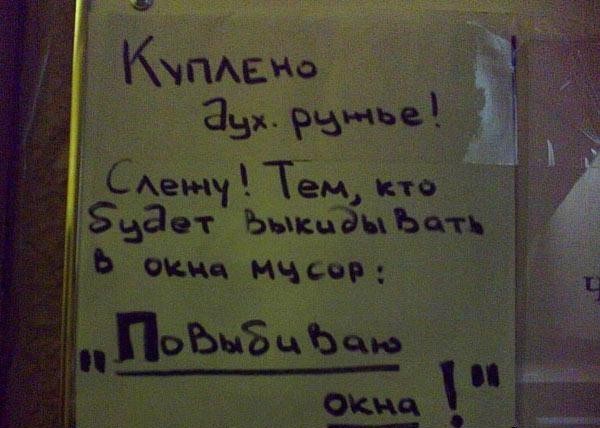 Куплено
дух. ружье!
Слежу! Тем, кто
будет выкидывать
в окна мусор:
„Повыбиваю
окна!"
Ч